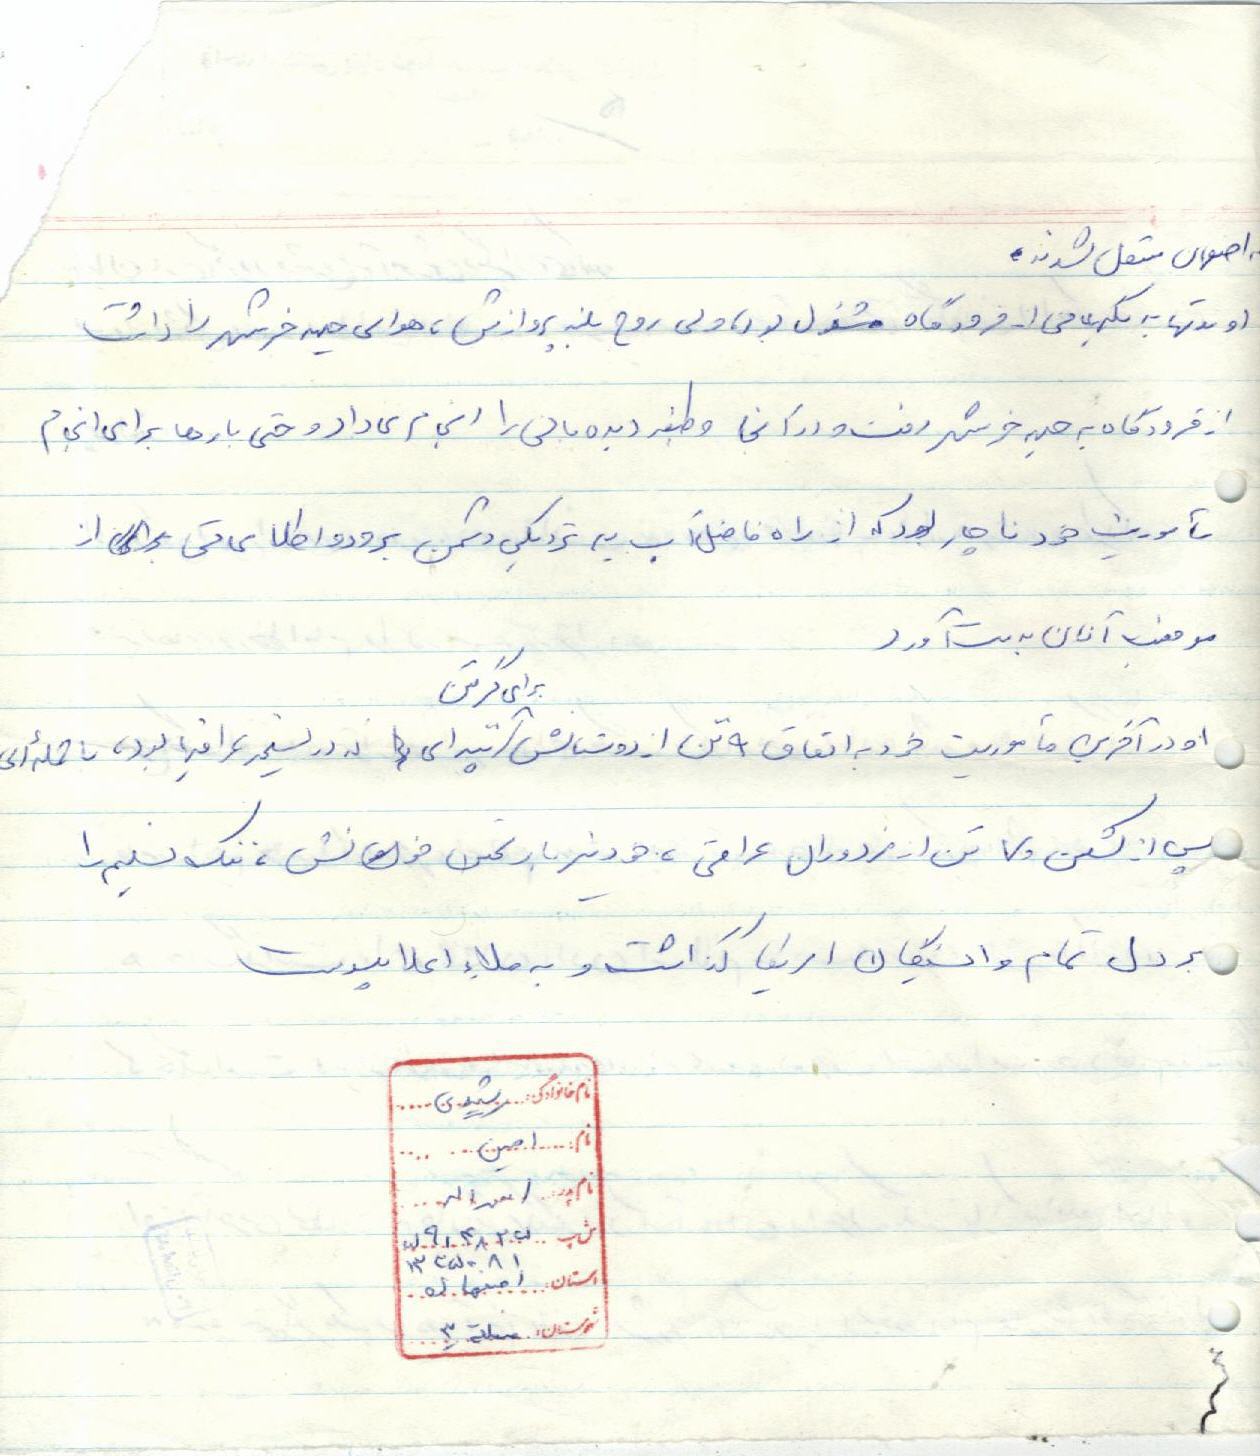 به اصفهان منتقل شدند.
او مدتها به نگهبانی از فرودگاه مشغول بود، ولی روح بلند پروازش، هوای جبهه خرمشهر را داشت
از فرودگاه به جبهه خرمشهر رفت و در آنجا وظیفه دیده بانی را انجام می داد و حتی بارها برای انجام
مأموریت خود ناچار بود که از راه فاضل آب به نزدیکی دشمن برود و اطلاعاتی از
موقعیت آنان به دست آورد
برای گرفتن
او در آخرین مأموریت خود به اتفاق ۹ تن از دوستانش تپه ای که در تسخیر عراقیها بود، با حمله ای
پس از کشتن تن از مزدوران عراقی، خود نیز با ریختن خونهایش، ننگ تسلیم را
بر دل تمام وابستگان امریکا گذاشت و به ملاء اعلا پیوست
نام خانوادگی: رشیدی
نام: امین
نام پدر: اسداله
ش پ ۵۹۱۴۸۲۵
۳۲۵۰۸۱
استان: اصفهان
شهرستان: منطقه ۳